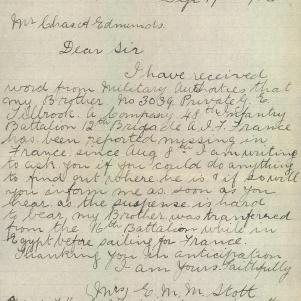 Sept
Mr Chas A Edmunds
Dear Sir
I have received
word from Military Authorities that
my Brother. No 3039 Private G. E.
A Company 48th Infantry
Battalion 12th Brigade A.I.F. France
has been reported missing in
France since Aug 8th I am writing
to ask you if you could do anything
to find out where he is & if so will
you inform me as soon as you
hear as the suspense is hard
to bear, my Brother was tranferred
from the 16th Battalion while in
Egypt before sailing for France.
Thanking you in anticipation
I am Yours Faithfully
Mrs E. M. M. Stott